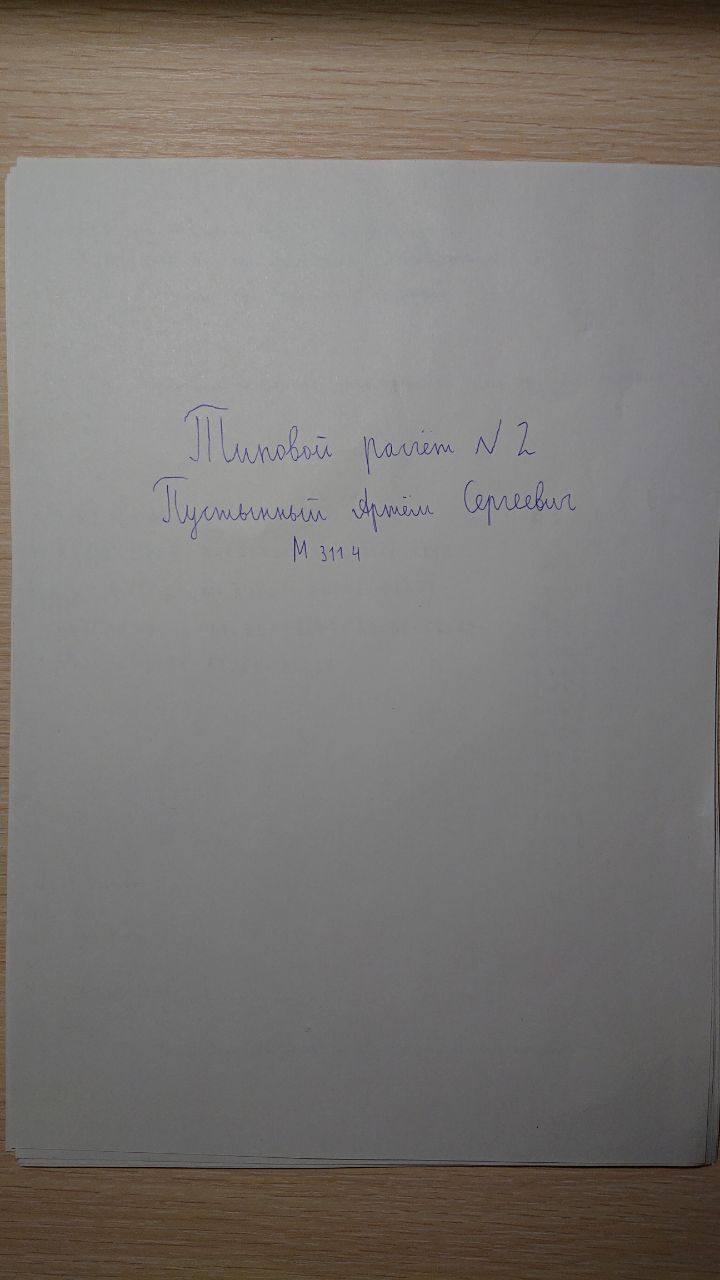 Типовой расчёт N 2
Пустынный Артём Сергеевич
М 3114